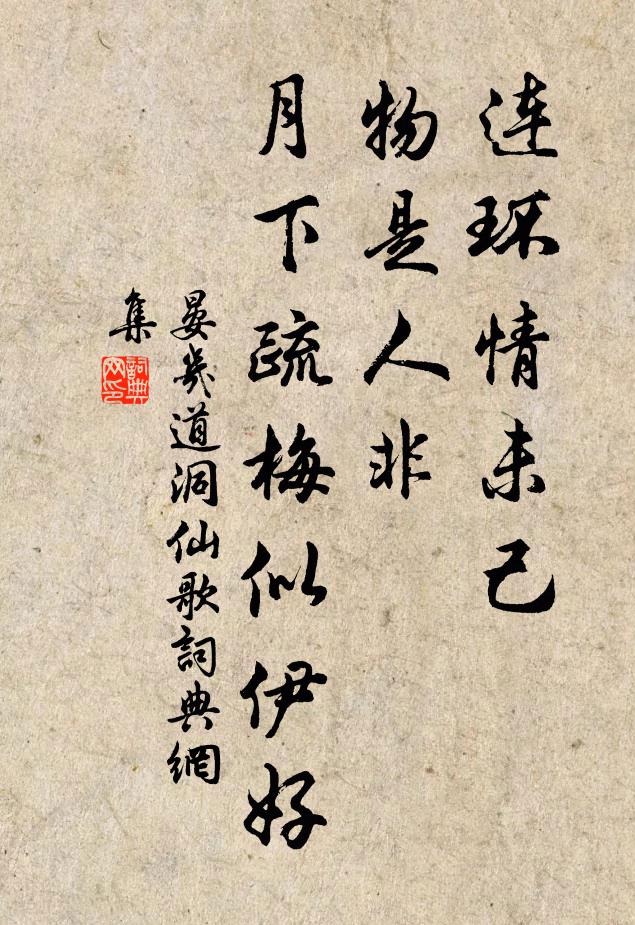 連环情未已
物是人非
月下疏梅似伊好
晏幾道洞仙歌詞典網
集
詞典
网印